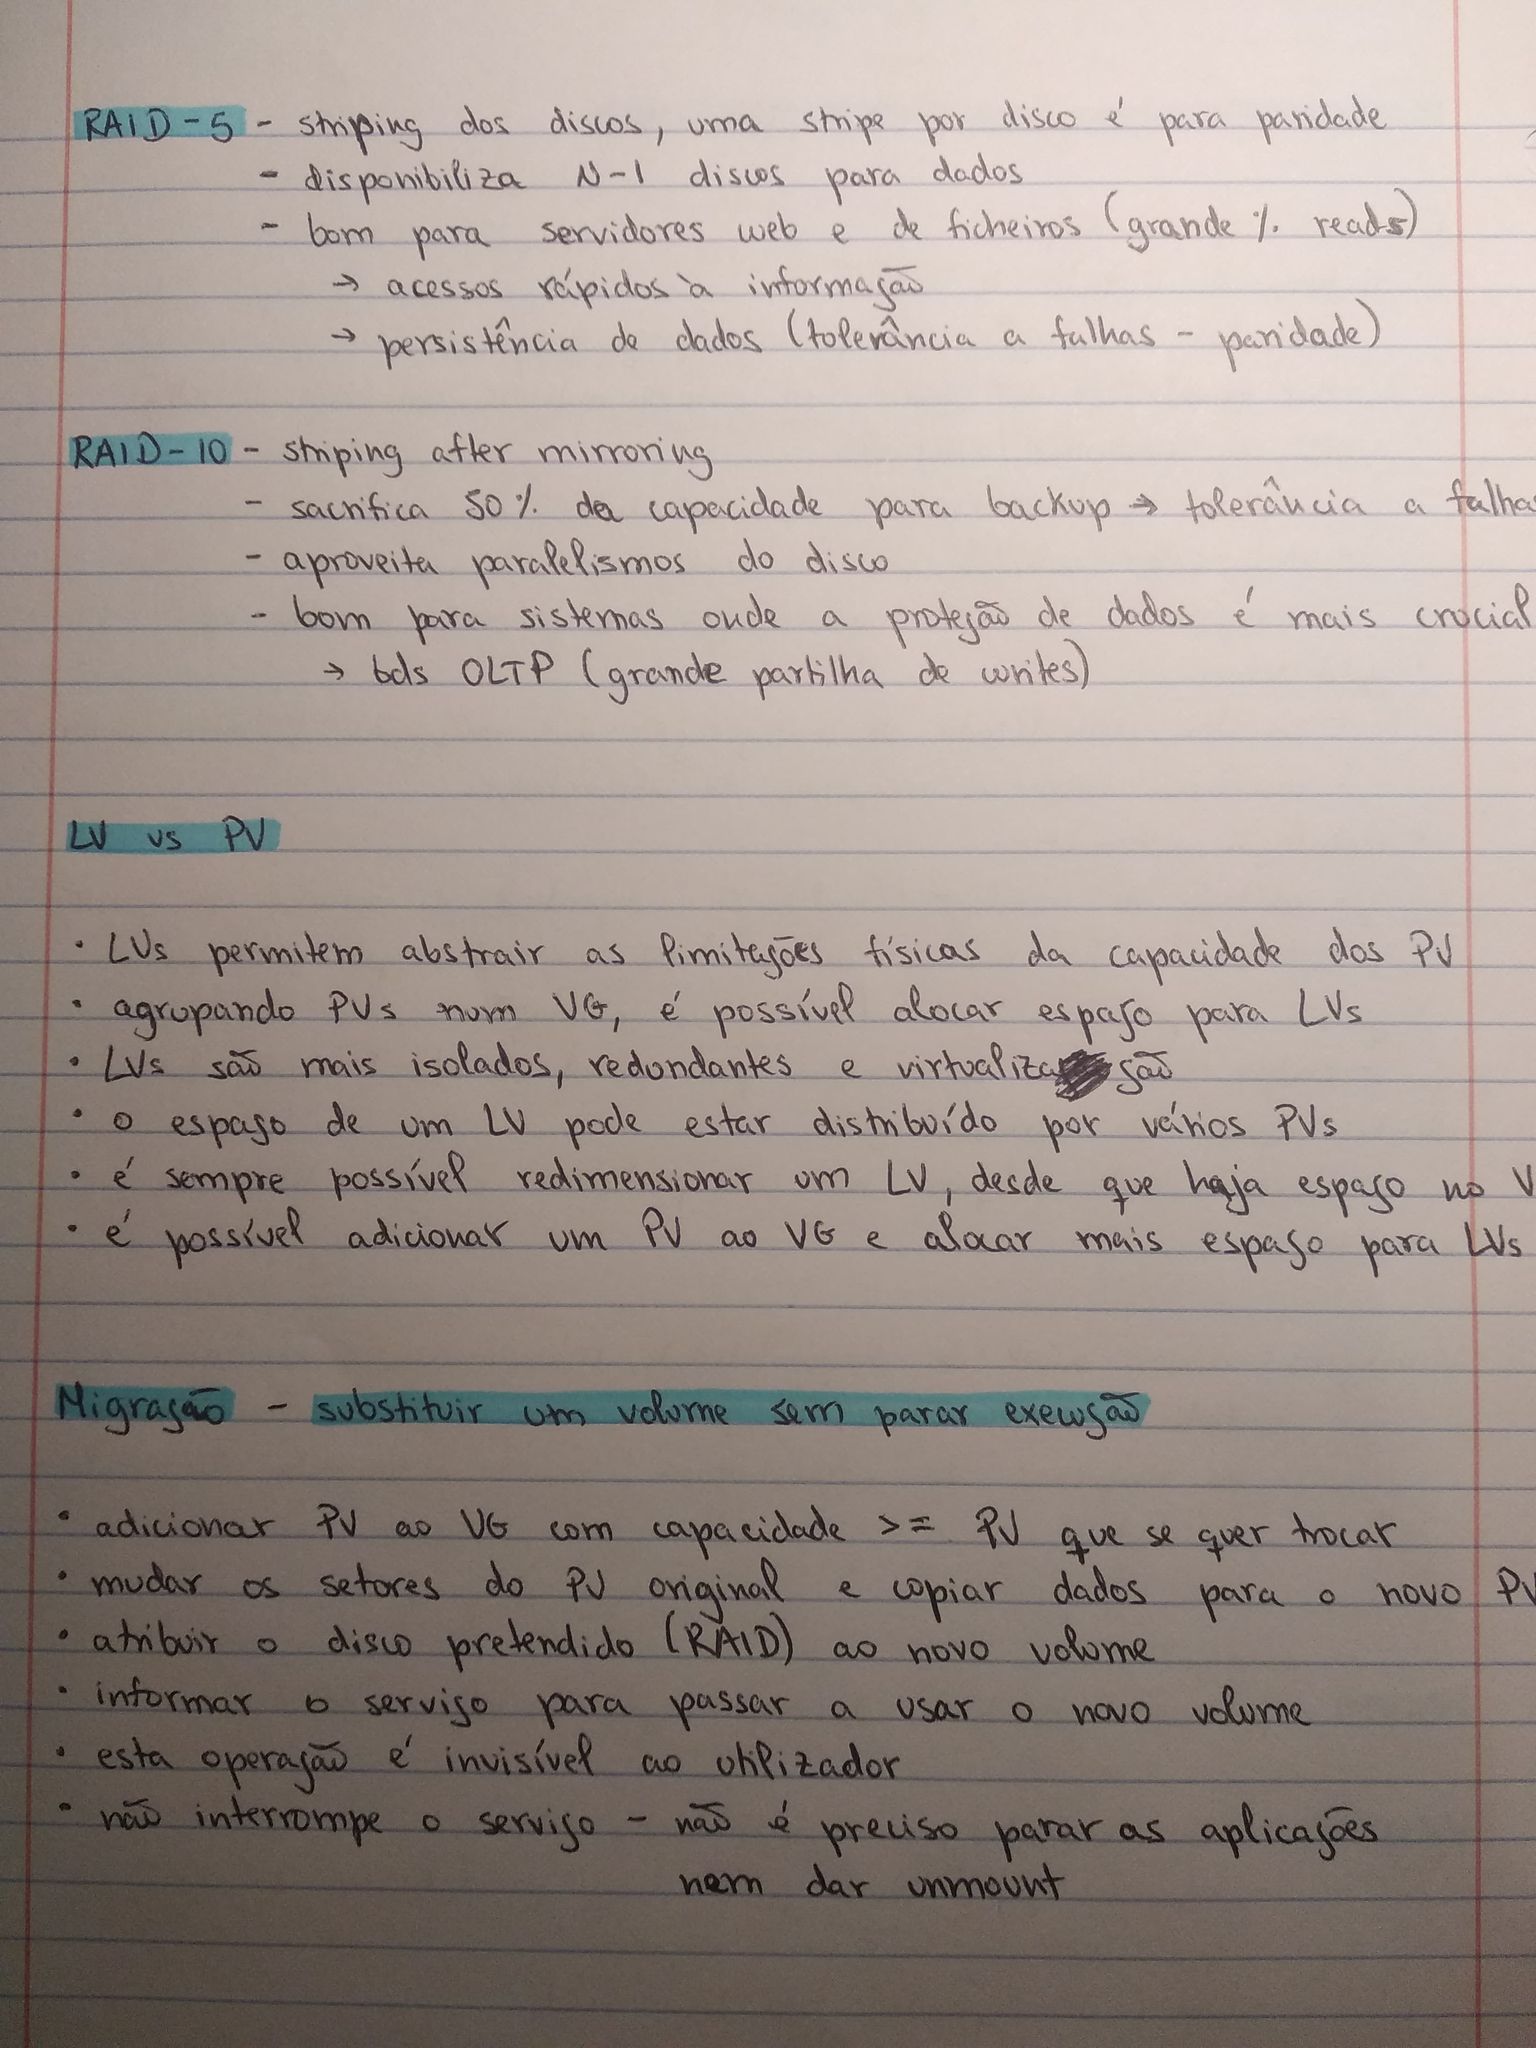 RAID-5 - striping dos discos, uma stripe por disco é para paridade
- disponibiliza N-1 discos para dados
- bom para servidores web e de ficheiros (grande % reads)
→ acessos rápidos à informação
→ persistência de dados (tolerância a falhas - paridade)
RAID-10 - striping after mirroring
- sacrifica 50% da capacidade para backup → tolerância a falhas
- aproveita paralelismos do disco
- bom para sistemas onde a proteção de dados é mais crucial
→ bds OLTP (grande partilha de writes)
LV vs PV
• LVs permitem abstrair as limitações físicas da capacidade dos PV
• agrupando PVs num VG, é possível alocar espaço para LVs
• LVs são mais isolados, redundantes e virtualização
• o espaço de um LV pode estar distribuído por vários PVs
• é sempre possível redimensionar um LV, desde que haja espaço no V
• é possível adicionar um PV ao VG e alocar mais espaço para LVs
Migração - substituir um volume sem parar execução
• adicionar PV ao VG com capacidade >= PV que se quer trocar
• mudar os setores do PV original e copiar dados para o novo PV
• atribuir o disco pretendido (RAID) ao novo volume
• informar o serviço para passar a usar o novo volume
• esta operação é invisível ao utilizador
• não interrompe o serviço - não é preciso parar as aplicações
nem dar unmount